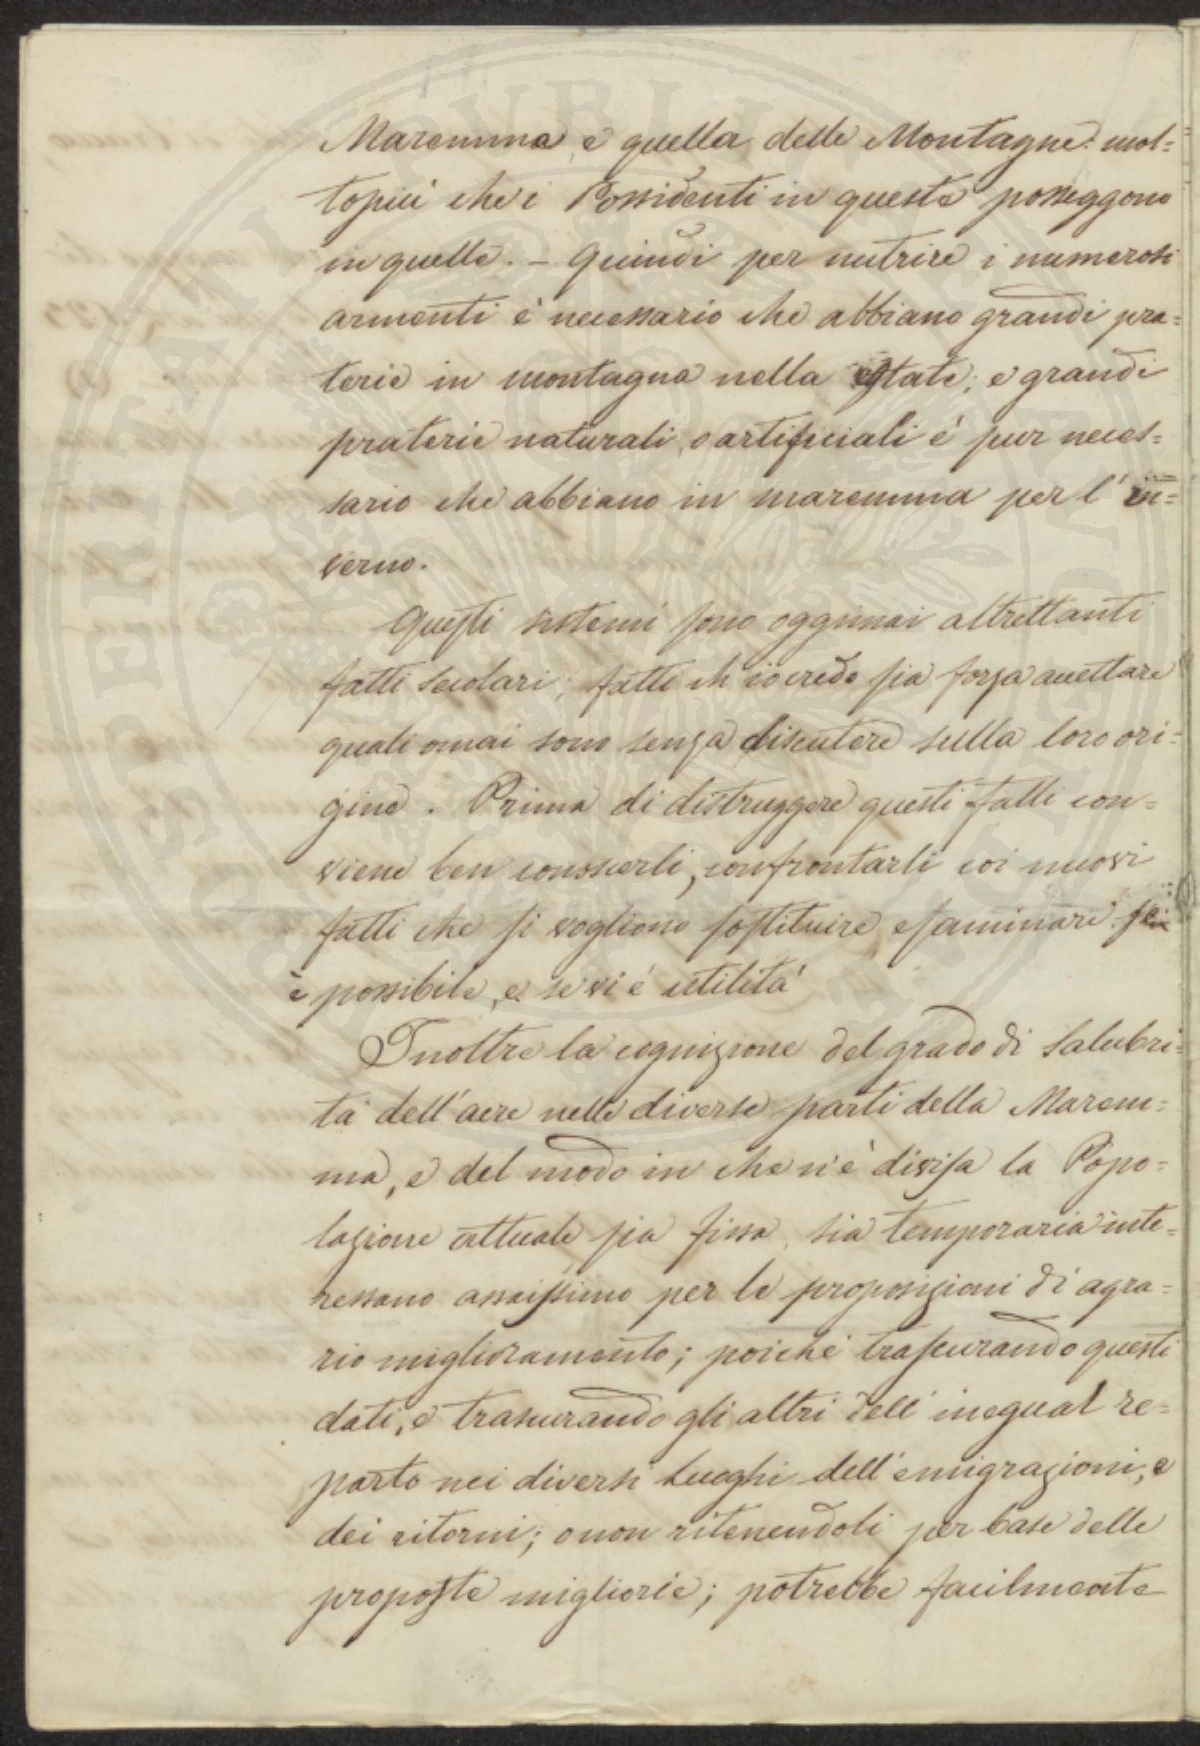 Maremma, e quella delle Montagne: mol=
topiù che i Possidenti in queste posseggono
in quelle. – Quindi per nutrire i numerosi
armenti è necessario che abbiano grandi pra=
terie in montagna nella estate; e grandi
praterie naturali, o artificiali è pur neces=
sario che abbiano in maremma per l'in=
verno.
Questi sistemi sono oggimai altrettanti
fatti secolari; fatti ch'io credo sia forza accettare
quali omai sono senza discutere sulla loro ori=
gine. Prima di distruggere questi fatti con=
viene ben conoscerli, confrontarli coi nuovi
fatti che si vogliono sostituire, esaminare se
è possibile, e se vi è utilità
Inoltre la cognizione del grado di salubri=
tà dell'aere nelle diverse parti della Marem=
ma, e del modo in che vi è divisa la Popo=
lazione attuale sia fissa, sia temporaria inte=
ressano assaissimo per le proposizioni di agra=
rio miglioramento; poiché trascurando questi
dati, e trascurando gli altri dell'inegual re=
parto nei diversi luoghi dell'emigrazioni, e
dei ritorni; o non ritenendoli per base delle
proposte migliorie; potrebbe facilmente